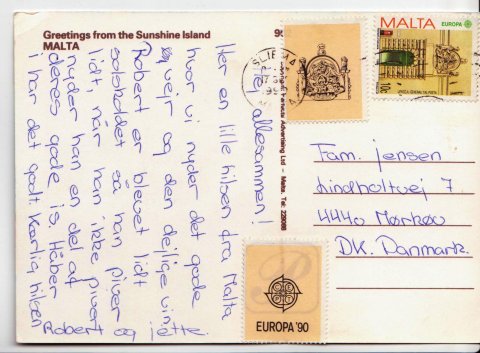 Greetings from the Sunshine Island
MALTA
Hej allesammen!
Her en lille hilsen fra Malta
hvor vi nyder det gode
vejr og den dejlige vin.
Robert er blevet lidt
solskoldet så han piver
lidt, når han ikke piver
nyder han en del af
deres gode is. Håber
i har det godt. Kærlig hilsen
Robert og jette.
Advertising Ltd - Malta. Tel:
SLIEMA
MALTA
EUROPA
10c
Fam. jensen
Lindholtvej 7
4440 Mørkøv
DK. Danmark.
EUROPA '90